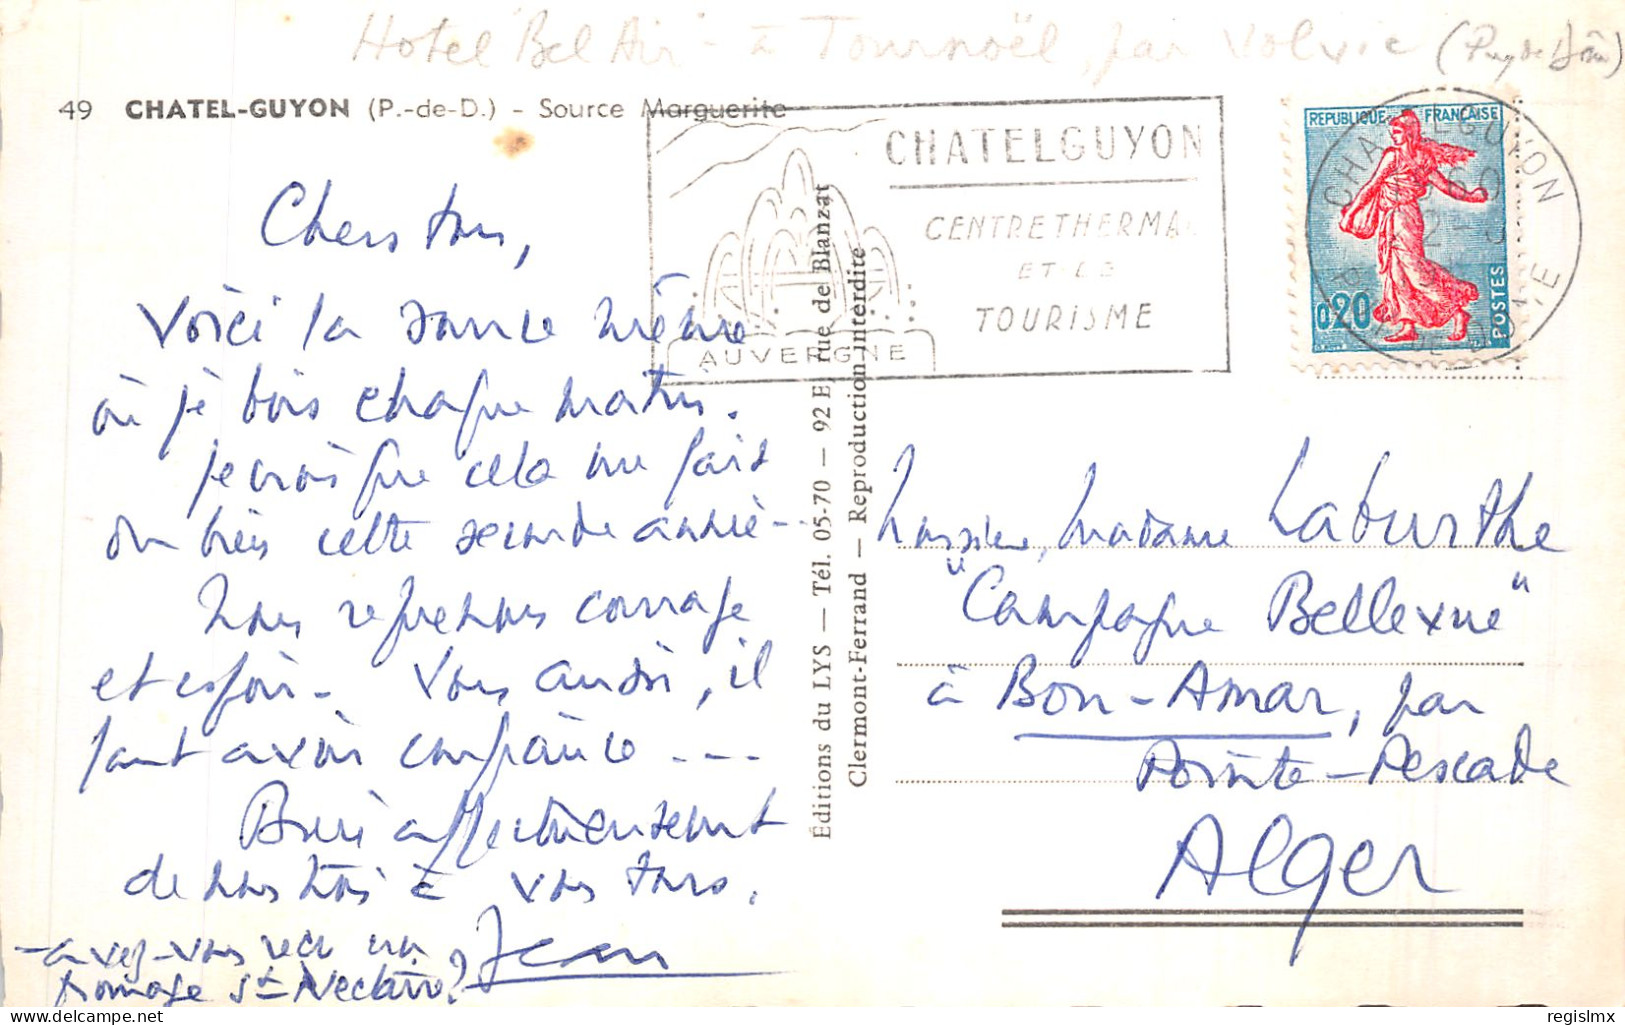 Hotel "Bel Air" - à Tournoël, par Volvic (Puy de Dôme)
49 CHATEL-GUYON (P.-de-D.) - Source Marguerite
CHATELGUYON
CENTRE THERMAL
ET DE
TOURISME
AUVERGNE
REPUBLIQUE FRANÇAISE
0,20
POSTES
CHATELGUYON
PUY DE DOME
Chers tous,
Voici la source même
où je bois chaque matin.
Je crois que cela me fait
du bien cette seconde année -
Nous reprenons courage
et espoir - Vous aussi, il
faut avoir confiance ---
Bien affectueusement
de nous trois à vous tous.
Jean
- avez-vous reçu un
fromage St-Nectaire?
Éditions du LYS — Tél. 05-70 — 92 E, rue de Blanzat
Clermont-Ferrand — Reproduction interdite
Monsieur, Madame Laburthe
"Campagne Bellevue"
à Bon-Amar, par
Pointe-Pescade
Alger
regislmx